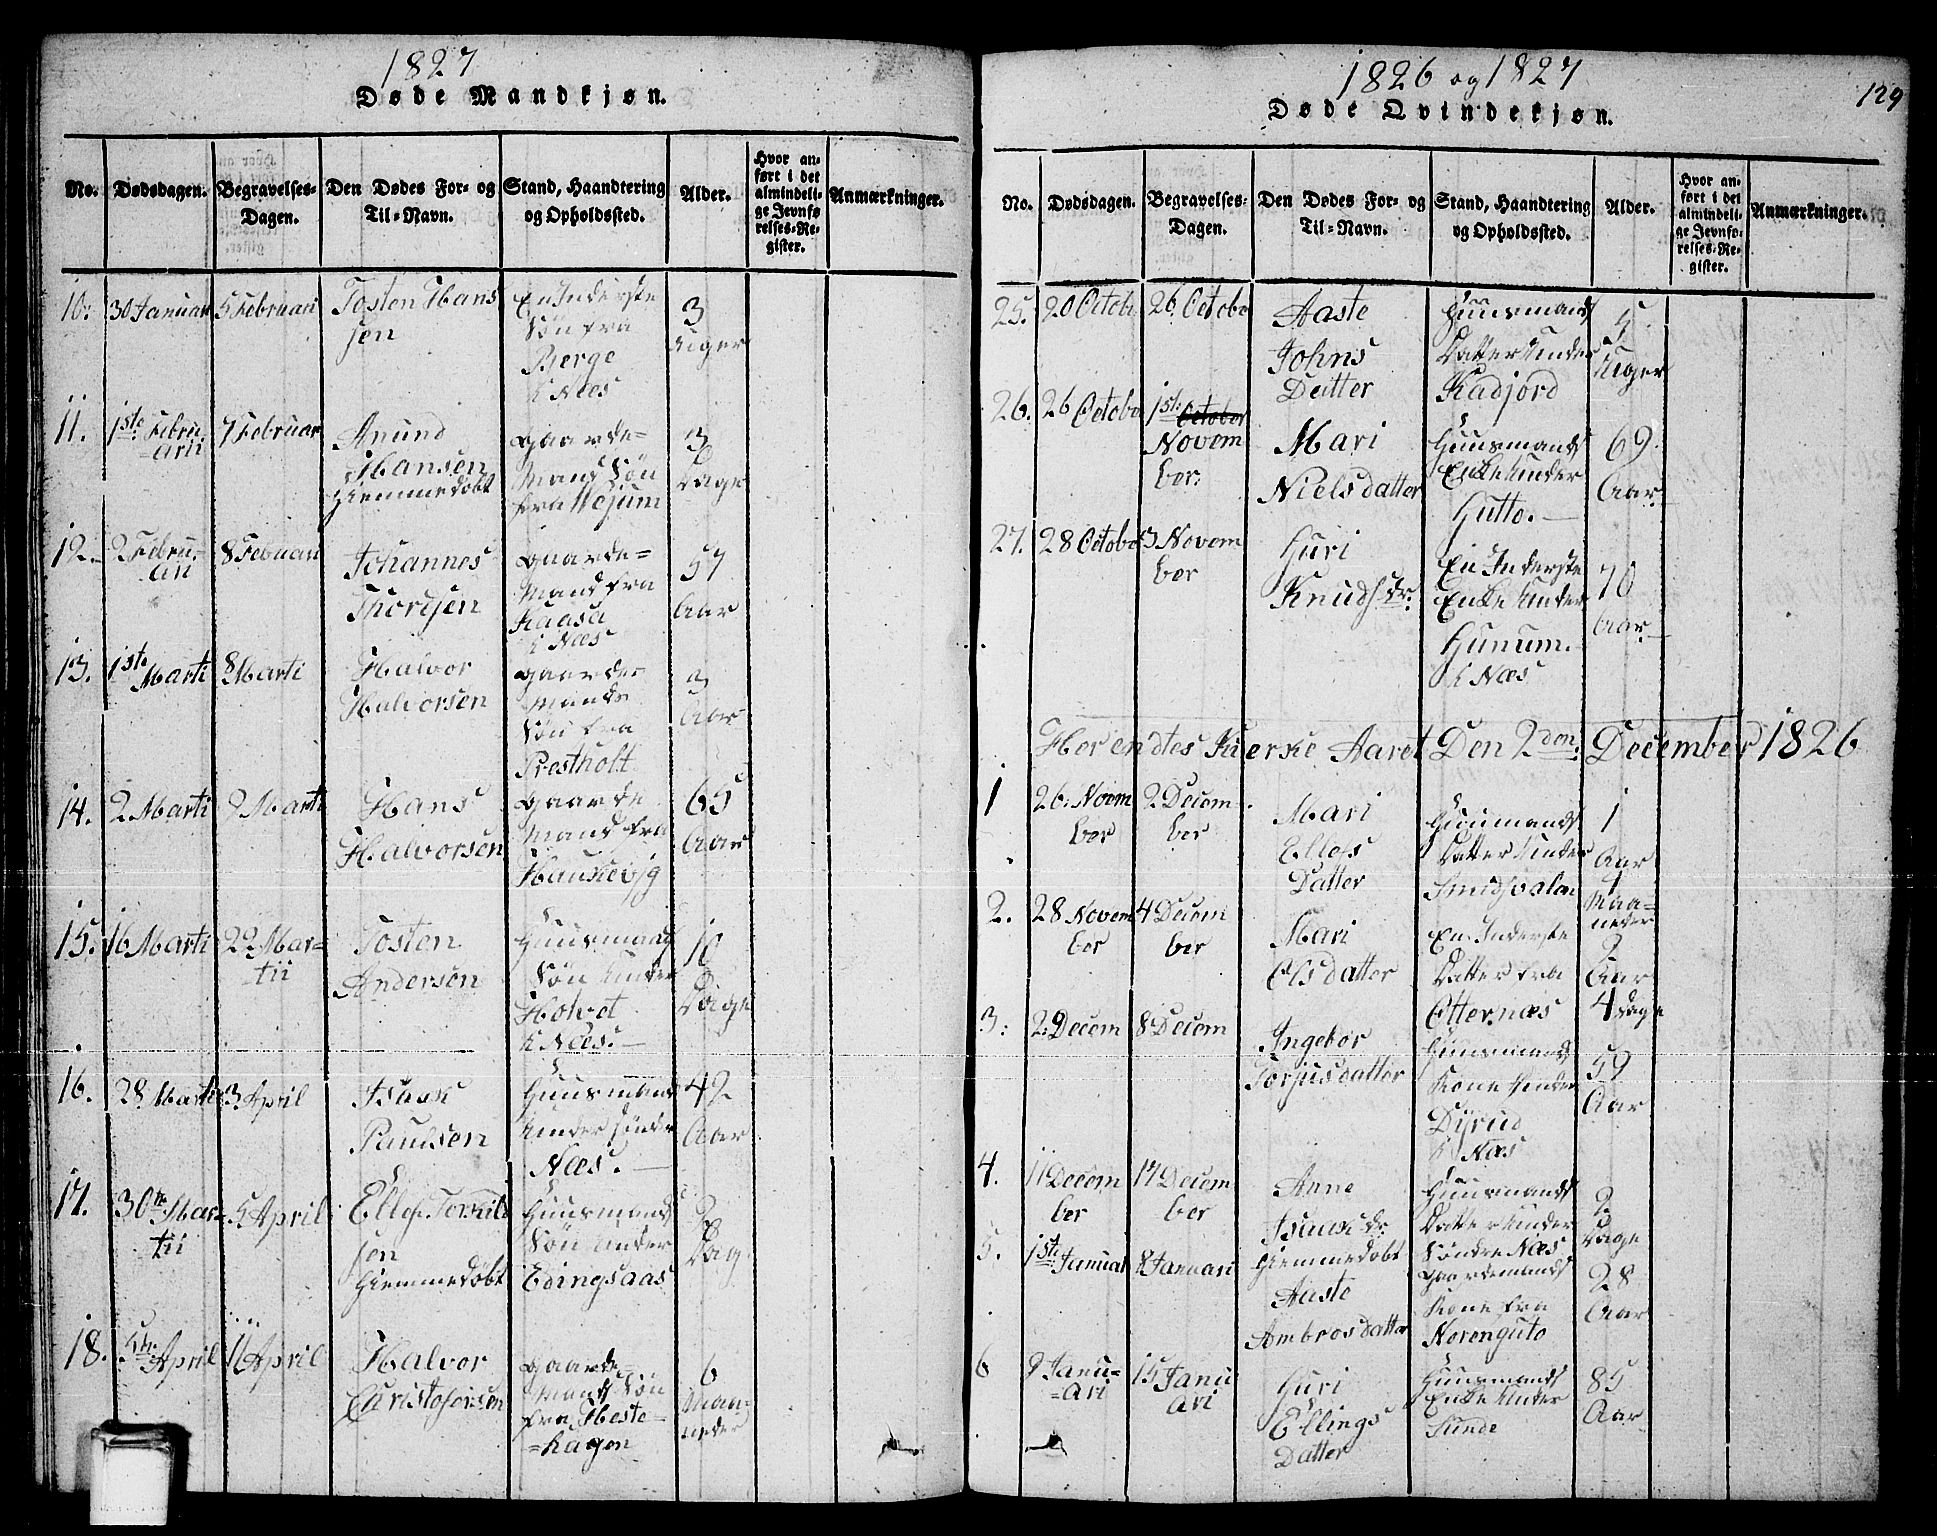 1827
Døde Mandkjøn.
No.
Dødsdagen.
Begravelses-
Dagen.
Den Dødes For- og
Til-Navn.
Stand, Haandtering
og Opholdssted.
Alder.
Hvor an-
ført i det
almindeli-
ge Jevnfø
relses-Re-
gister.
Anmærkninger.
10.
30 Januar
5 Februari
Tosten Hans
sen
En Inderste
Søn fra
Berge
i Næs
3
Uger
11.
1ste Febru
=arii
7 Februar
Anund
Hansen
Hiemmedøbt
Gaarde=
Mands Søn
fra
3
Dage
12.
2 Febru
ari
8 Februari
Johannes
Thordsen
Gaarde=
Mand fra
Kaasa
i Næs
57
Aar
13.
1ste Marti
8 Marti
Halvor
Halvorsen
Gaarde=
Mands
Søn fra
Prestholt
Aar
14.
2 Marti
9 Marti
Hans
Halvorsen
Gaarde
Mand fra
Haukevig
65
Aar
15.
16 Marti
22 Mar=
tii
Tosten
Andersen
Huusmands
Søn Under
Holvet
i Næs.
10
Dage
16.
28 Marti
3 April
Isaak
Paulsen
Huusmand
Under Søndre
Næs.
42
Aar
17.
30te Mar=
tii
5 April
Ellef Torkils
sen
Hiemmedøbt
Huusmands
Søn Under
Edingsaas
Dag
18.
5te April
11 April
Halvor
Christofersen
Gaarde=
Mands Søn
fra Heste=
=hagen
6
Maa=
neder
1826 og 1827
129
Døde Qvindekjøn.
No.
Dødsdagen.
Begravelses-
Dagen.
Den Dødes For- og
Til-Navn.
Stand, Haandtering
og Opholdssted.
Alder.
Hvor an-
ført i det
almindeli-
ge Jevnfø-
relses-Re-
gister.
Anmærkninger.
25.
20 Octob
26 Octobe
Aaste
Johns
Datter
Huusmands
Datter Under
5
Uger
26.
26 Octobe
1ste October
Novem
ber.
Mari
Nielsdatter
Huusmands
Enke Under
Gutto.
69
Aar
27.
28 Octobe
3 Novem
ber
Guri
Knudsdr.
En Inderste
Enke Under
i Næs
70
Aar
Her endtes Kierke Aaret Den 2den December 1826
1
26 Novem
ber
2 Decem
ber
Mari
Ellefs
Datter
Huusmands
Datter Under
1
Aar
Maa=
neder
2.
28 Novem
ber
4 Decem
ber
Mari
Olsdatter
En Inderste
Datter fra
Etternæs
2
Aar
4 Dage
3.
2 Decem
8 Decem
Ingebor
Torjusdatter
Huusmands
Kone Under
Dyrud
i Næs
59
Aar
4.
11 Decem
ber
17 Decem
ber
Anne
Isaksdr.
Hiemmedøbt
Huusmands
Datter Under
Søndre Næs
2
Dage
5.
1ste Januar
8 Januari
Aaste
Ambrosdatter
Gaardemands
Kone fra
Norenguto
28
Aar
6
9 Janu=
=ari
15 Janu
ari
Guri
Ellings
Datter
Huusmands
Enke Under
Sunde
85
Aar